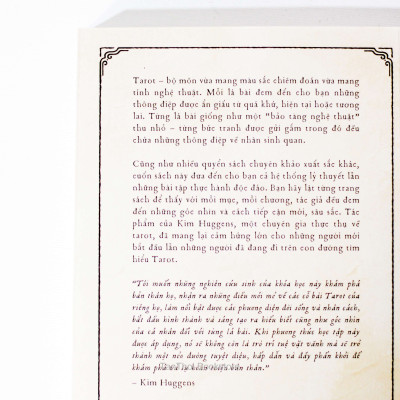 Tarot – bộ môn vừa mang màu sắc chiêm đoán vừa mang
tính nghệ thuật. Mỗi lá bài đem đến cho bạn những
thông điệp được ẩn giấu từ quá khứ, hiện tại hoặc tương
lai. Từng lá bài giống như một "bảo tàng nghệ thuật"
thu nhỏ – từng bức tranh được gửi gắm trong đó đều
chứa những thông điệp về nhân sinh quan.
Cũng như nhiều quyển sách chuyên khảo xuất sắc khác,
cuốn sách này đưa đến cho bạn cả hệ thống lý thuyết lẫn
những bài tập thực hành độc đáo. Bạn hãy lật từng trang
sách để thấy với mỗi mục, mỗi chương, tác giả đều đem
đến những góc nhìn và cách tiếp cận mới, sâu sắc. Tác
phẩm của Kim Huggens, một chuyên gia thực thụ về
tarot, đã mang lại cảm hứng lớn cho những người mới
bắt đầu lẫn những người đã đang đi trên con đường tìm
hiểu Tarot.
"Tôi muốn những nghiên cứu sinh của khóa học này khám phá
bản thân họ, nhận ra những điều mới mẻ về các cỗ bài Tarot của
riêng họ, làm nổi bật được các phương diện đời sống và nhân cách,
bắt đầu hình thành và sáng tạo ra hiểu biết cũng như góc nhìn
của cá nhân đối với từng lá bài. Khi phương thức học tập này
được áp dụng, nó sẽ không còn là trò trí tuệ vặt vãnh mà sẽ trở
thành một nẻo đường tuyệt diệu, hấp dẫn và đầy phấn khởi để
khám phá về sự hoàn thiện bản thân."
– Kim Huggens